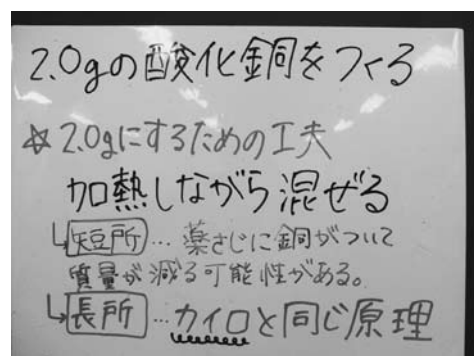 2.0gの酸化銅をつくる
☆2.0gにするための工夫
加熱しながら混ぜる
↳短所…薬さじに銅がついて
質量が減る可能性がある。
↳長所…カイロと同じ原理